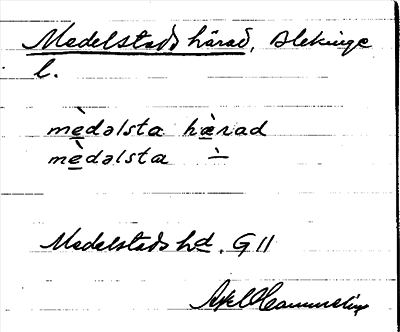 Medelstads härad, Blekinge
l.
mèdəlsta hæ̀rad
mèdəlsta ∸
Medelstads hd. G 11
Axel Hammelin